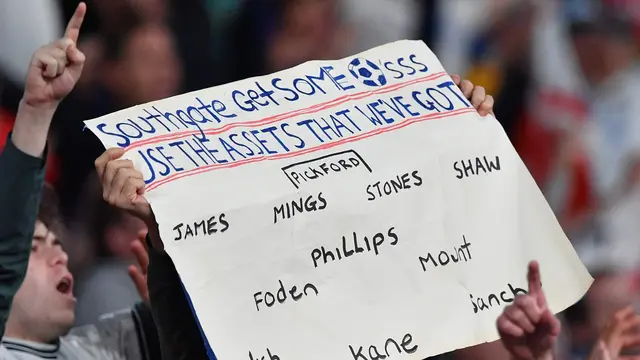 Southgate Get SOME ⚽SSS
USE THE ASSETS THAT WE'VE GOT
PICKFORD
JAMES MINGS STONES SHAW
PHILLIPS
FODEN MOUNT
SANCH
KANE